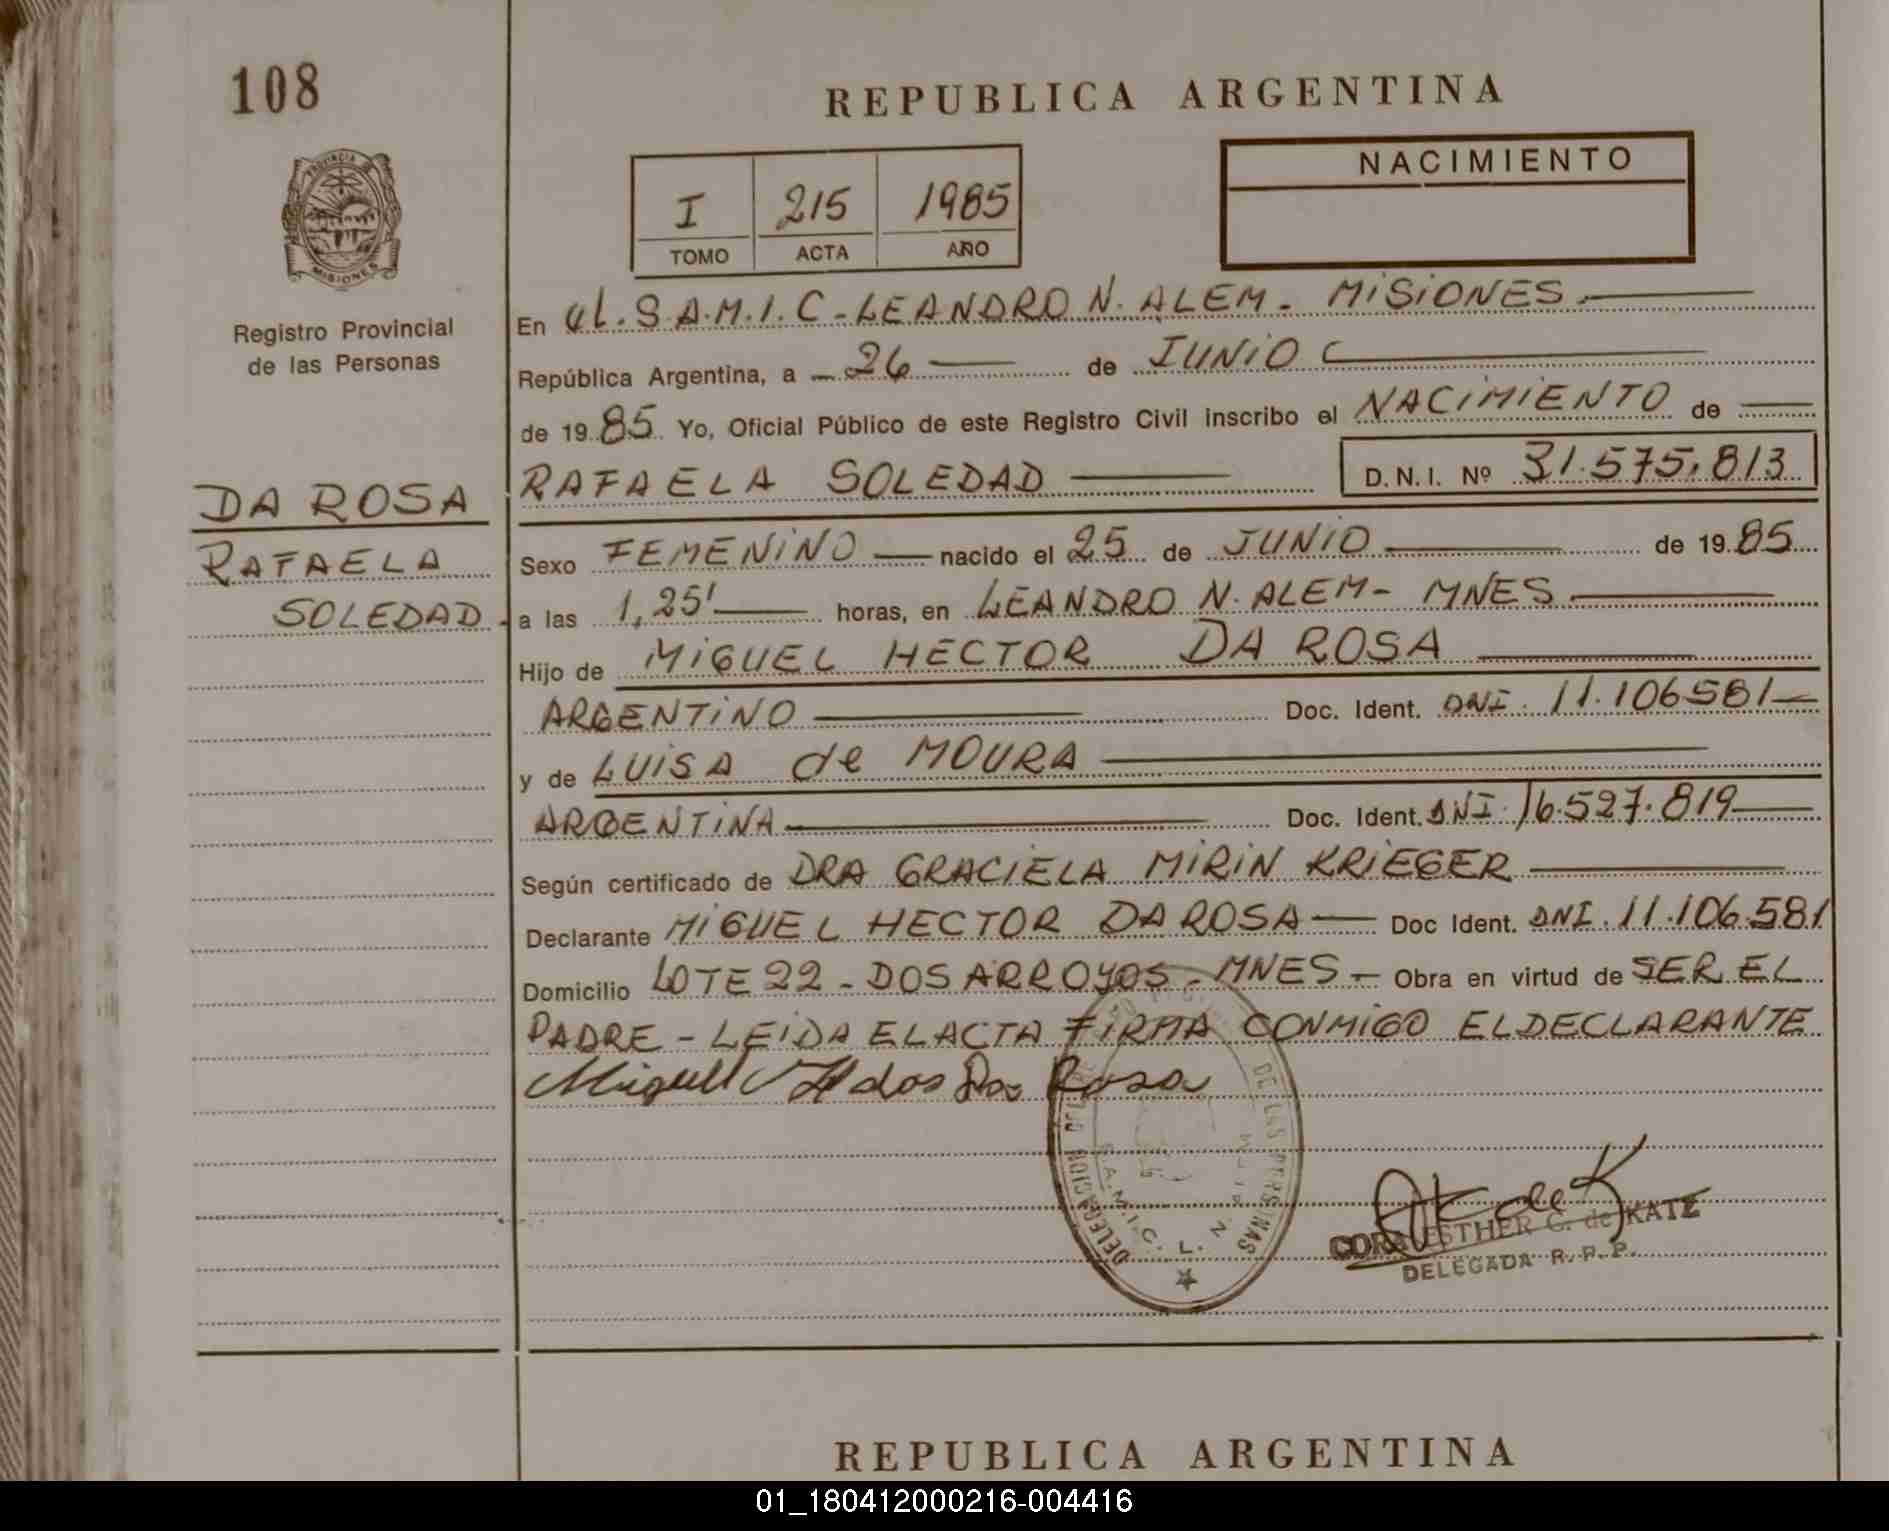 108
REPUBLICA ARGENTINA
PROVINCIA DE
MISIONES
Registro Provincial
de las Personas
I 215 1985
TOMO ACTA AÑO
NACIMIENTO
En el S.A.M.I.C - LEANDRO N. ALEM - MISIONES.
República Argentina, a 26 de JUNIO
de 19 85 Yo, Oficial Público de este Registro Civil inscribo el NACIMIENTO de
RAFAELA SOLEDAD D.N.I. Nº 31.575.813
DA ROSA
RAFAELA
SOLEDAD -
Sexo FEMENINO nacido el 25 de JUNIO de 19 85
a las 1,25' horas, en LEANDRO N. ALEM - MNES
Hijo de MIGUEL HECTOR DA ROSA
ARGENTINO Doc. Ident. DNI. 11.106581
y de LUISA de MOURA
ARGENTINA Doc. Ident. DNI. 16.527.819
Según certificado de DRA GRACIELA MIRIN KRIEGER
Declarante MIGUEL HECTOR DA ROSA Doc Ident. DNI. 11.106.581
Domicilio LOTE 22 - DOS ARROYOS - MNES - Obra en virtud de SER EL
PADRE - LEIDA EL ACTA FIRMA CONMIGO EL DECLARANTE
Miguel H dos Rosa
DELEGACION DE LAS PERSONAS
S.A.M.I.C. L. N.
CORA ESTHER G. de KATZ
DELEGADA R. P. P.
REPUBLICA ARGENTINA
01_180412000216-004416